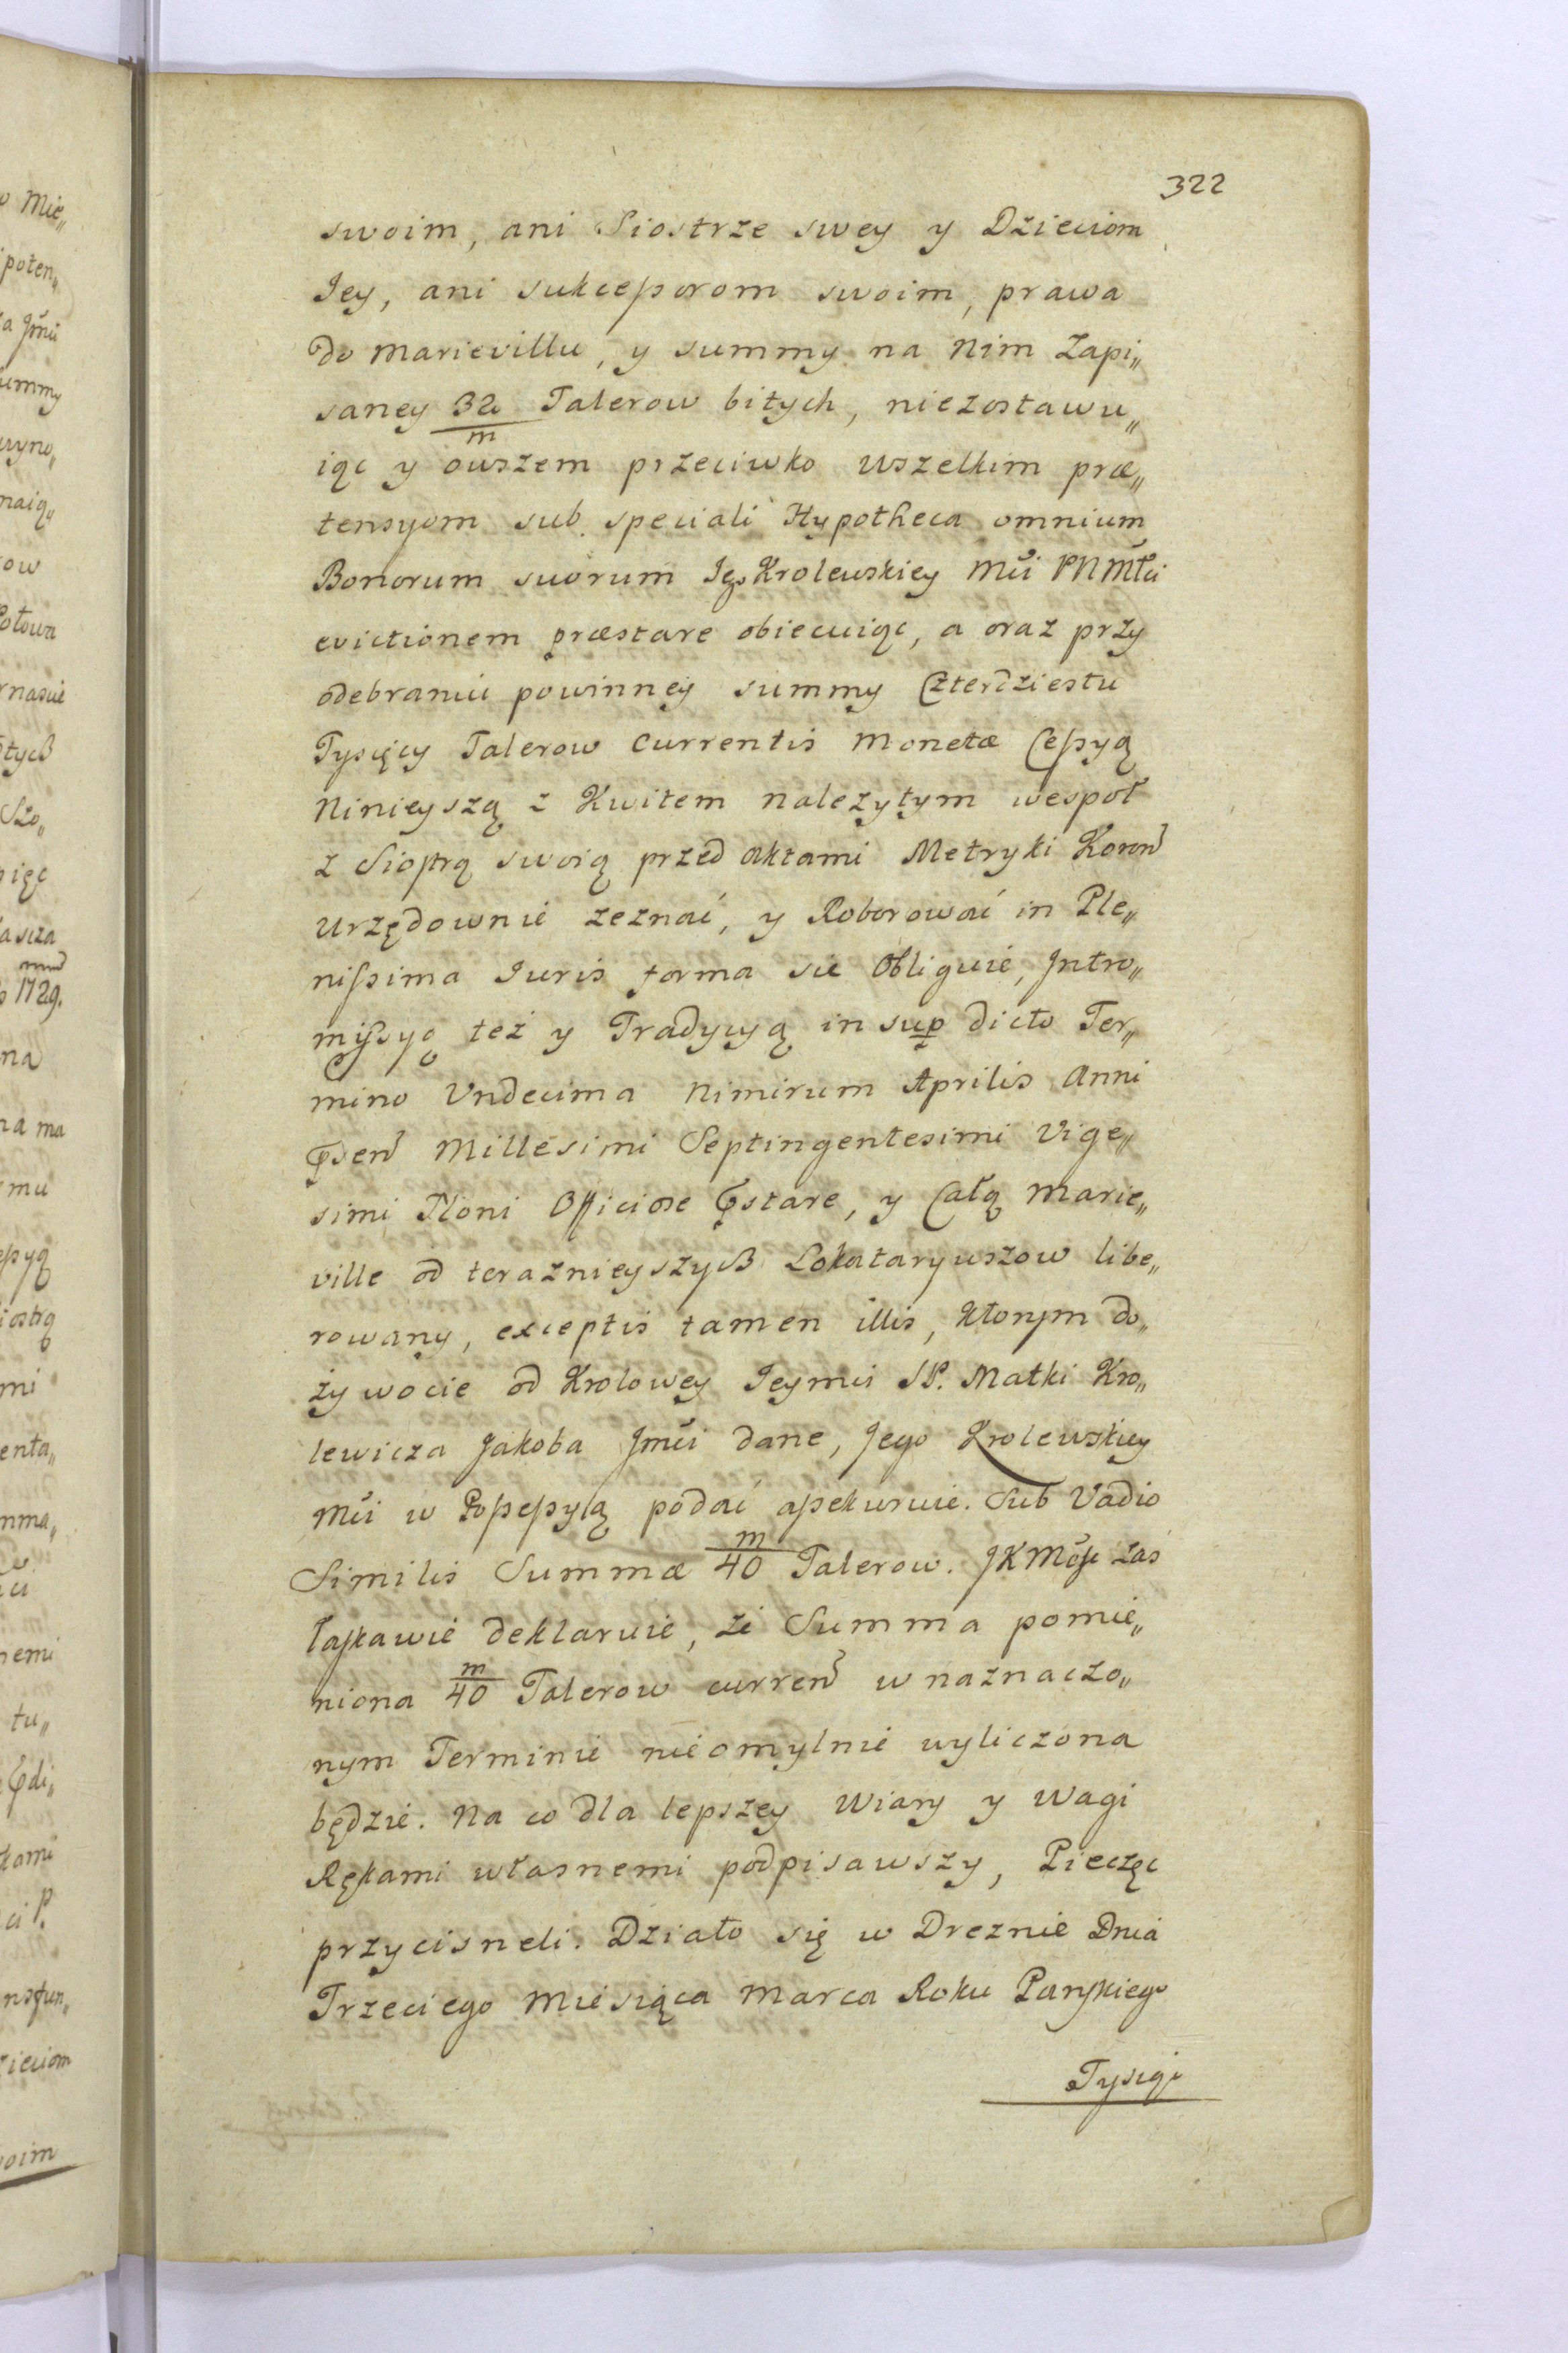 322
swoim, ani Siostrze swey y Dzieciom
Jey, ani sukcessorom swoim, prawa
do Marievillu, y summy na Nim Zapi„
saney 32/m Talerow bitych, niezostawu„
iąc y owszem przeciwko wszelkim præ„
tensyom sub speciali Hypotheca omnium
Bonorum suorum Jego Krolewskiey Mći PNMłći
evictionem præstare obiecuiąc, a oraz przy
odebraniu powinney summy Czterdziestu
Tysięcy Talerow Currentis Monetæ Cessyą
Ninieyszą z Kwitem nalezytym wespoł
z Siostrą swoią przed Aktami Metryki Koron
Urzędownie zeznać, y Roborować in Ple„
nissima Juris forma sie Obliguie, Intro„
missyą też y Tradycyą in sup dicto Ter„
mino Vndecima Nimirum Aprilis Anni
Pręsen Millesimi Septingentesimi Vige„
simi Noni Officiose Pręstare, y Całą Marie„
ville od teraznieyszych Lokataryuszow libe„
rowany, exceptis tamen illis, ktorym do„
żywocie od Krolowey Jeymći SP. Matki Kro„
lewicza Jakoba Jmći dane, Jego Krolewskiey
Mći w Possessyią podać assekuruie. Sub Vadio
Similis Summæ m/40 Talerow. JKMość zaś
łaskawie deklaruie, że Summa pomie„
niona m/40 Talerow curren w naznaczo„
nym Terminie nieomylnie wyliczona
będzie. Na co dla lepszey Wiary y Wagi
Rękami własnemi podpisawszy, Pieczęc
przycisneli. Działo się w Dreznie Dnia
Trzeciego Miesiąca Marca Roku Panskiego
Tysiąc